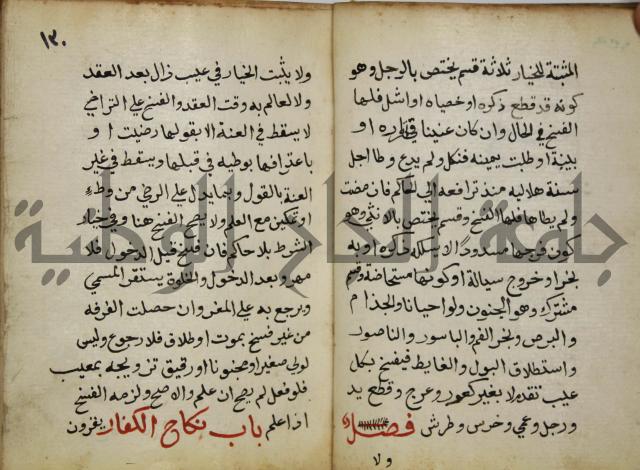 المثبتة للخيار ثلاثة قسم يختص بالرجل وهو
كونه قد قطع ذكره او خصياه او اشل فلها
الفسخ في الحال وان كان عنينا باقراره او
ببينة او طلبت يمينه فنكل ولم يدع وطا اجل
سنة هلالية منذ ترافعه الي الحاكم فان مضت
ولم يطاها فلها الفسخ وقسم يختص بالانثي وهو
كون فرجها مسدودا لا يسلكه ذكر او به
بخر او خروج سيالة او كونها مستحاضة وقسم
مشترك وهو الجنون ولو احيانا والجذام
والبرص وبخر الفم والباسور والناصور
واستطلاق البول والغايط فيفسخ بكل
عيب تقدم لا بغيره كعور وعرج وقطع يد
ورجل وعمي وخرس وطرش فصل
ولا
١٣٠
ولا يثبت الخيار في عيب زال بعد العقد
ولا لعالم به وقت العقد والفسخ علي التراخي
لا يسقط في العنة الا بقولها رضيت او
باعترافها بوطيه في قبلها ويسقط في غير
العنة بالقول وبما يدل علي الرضي من وطء
او تمكين مع العلم ولا يصح الفسخ هنا وفي خيار
الشرط بلا حاكم فان فسخ قبل الدخول فلا
مهر وبعد الدخول والخلوة يستقر المسمي
ويرجع به علي المغر وان حصلت الفرقه
من غير فسخ بموت او طلاق فلا رجوع وليس
لولي صغير او مجنون او رقيق تزويجه بمعيب
فلو فعل لم يصح ان علم والا صح ولزمه الفسخ
اذا علم باب نكاح الكفار يقرون
جامعة النجاح الوطنية